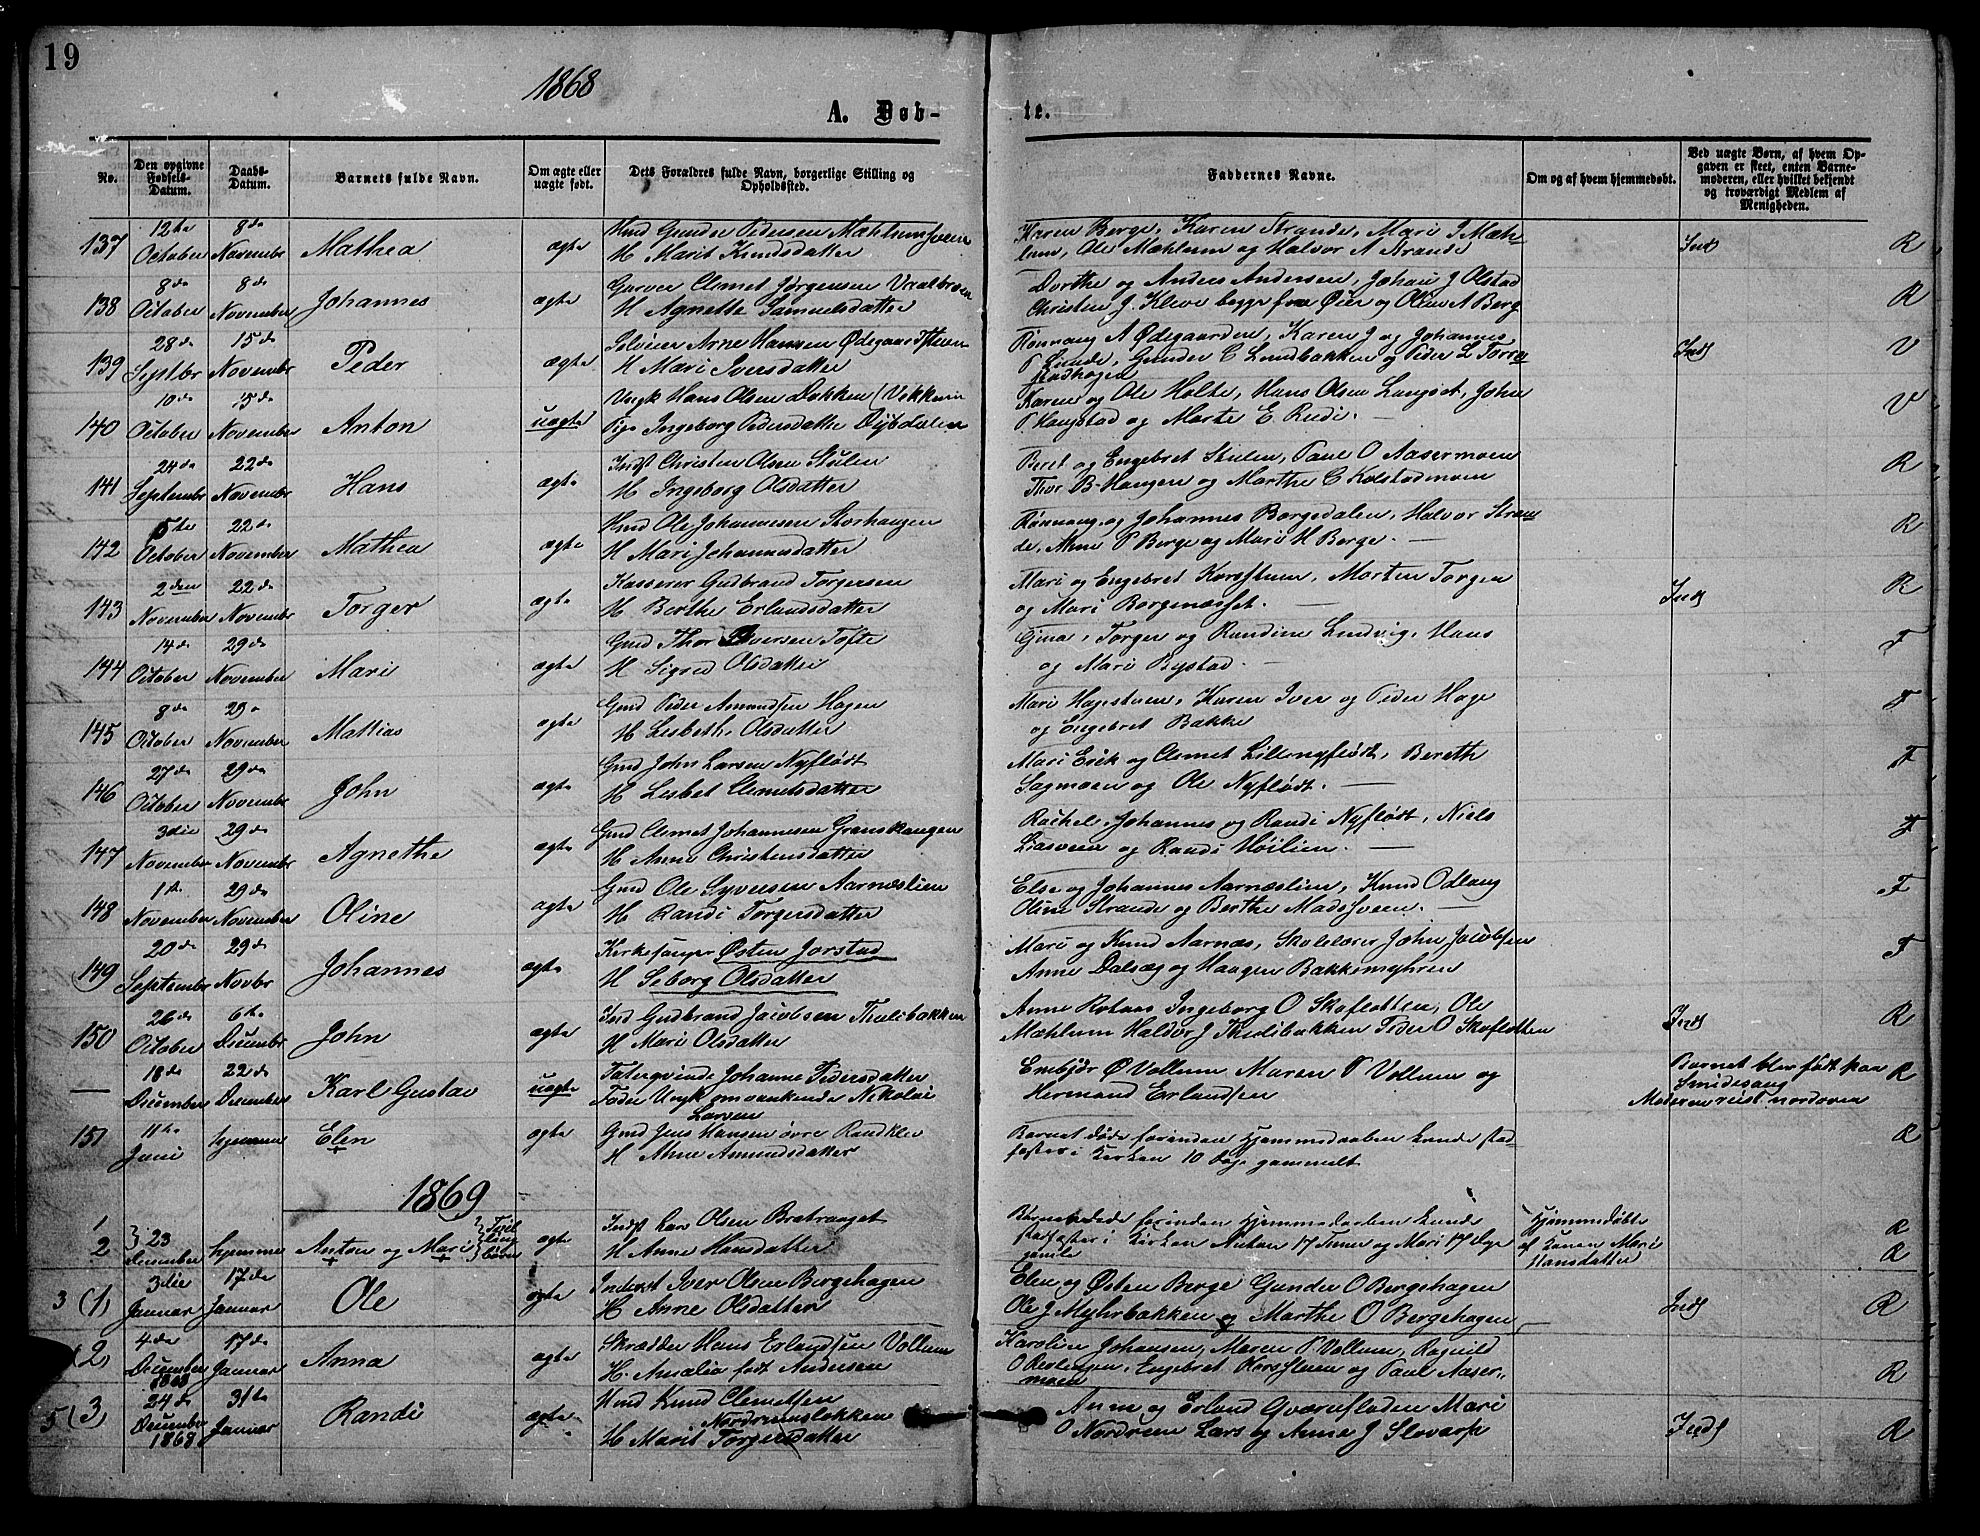 19
1868
A. Døb-
te.
No.
Den opgivne Fødsels-Datum.
Daabs-Datum.
Barnets fulde Navn.
Om ægte eller uægte født.
Dets Forældres fulde Navn, borgerlige Stilling og Opholdssted.
Faddernes Navne.
Om og af hvem hjemmedøbt.
Ved uægte Børn, af hvem Opgaven er skeet, enten Barnemoderen, eller hvilket bekjendt og troværdigt Medlem af Menigheden.
12te 8de Gunder Pedersen Mæhlumsveen Karen Berge, Karen Strande, Mari J Mæh-
137 October Novembr Mathea ægte H Marit Knudsdatter lum, Ole Mæhlum og Halvor A Strande Ind R
8de 8de Clemet Jørgensen Dorthe og Anders Andersen, Johan J Olstad
138 October November Johannes ægte H Agnethe Samuelsdatter Christen J. Kleve begge fra Øier og Oline A Berg R
28de 15de Arne Hansen Rønnaug A Ødegaarden, Karen J og Johannes
139 Septbr Novembr Peder ægte H Mari Iversdatter P Lunde, Gunder C Lundbakken og Peder L Ind V
10de 15de Ungk Hans Olsen Dokken Karen og Ole Holte, Hans Olsen Langset, Johan
140 October November Anton uægte Pige Ingeborg Pedersdatter Dybdalen P Haugstad og Marte E. Rudi. — V
24de 22de Indst Christen Olsen Stulen Beret og Engebret Stulen, Paul O Aasermoen
141 September November Hans ægte H Ingeborg Olsdatter Thor B Haugen og Marthe C Kolstadmoen R
5te 22de Ole Johannesen Storhaugen Rønnaug og Johannes Borgedalen, Halvor Stran-
142 October November Mathea ægte H Mari Johannesdatter de, Anne P Berge og Mari H Berge. — R
2den 22de Kasserer Gudbrand Torgersen Mari og Engebret Korsstuen, Morten Torgen
143 November November Torger ægte H Berthe Erlandsdatter og Mari Borgenæsset. — Ind R
14de 29de Gmd Thor Iversen Tofte Gina, Torger og Randine Ludvig, Hans
144 October November Mari ægte H Sigrid Olsdatter og Mari Bystad. — F
8de 29de Gmd Peder Amundsen Hagen Mari Hagestuen, Karen Iver og Peder Hage
145 October November Mathias ægte H Lisbeth Olsdatter og Engebret Bakke F
27de 29de Gmd John Larsen Nyflødt Mari Erik og Clemet Lillenyflødt, Bereth
146 October Novembr John ægte H Lisbet Clemetsdatter Sagmoen og Ole Nyflødt. — F
3die 29de Gmd Clemet Johannesen Granshaugen Rachel, Johannes og Randi Nyflødt, Niels
147 November November Agnethe ægte H Anne Christensdatter Liasveen og Randi Høilien. — F
1ste 29de Gmd Ole Syversen Aarnæslien Else og Johannes Aarnæslien, Knud Odlaug
148 November November Oline ægte H Randi Torgersdatter Oline Strande og Berthe Madssveen. — F
20de 29de Kirkesanger Østen Jorstad Mari og Knud Aarnæs, Skolelærer John Jacobsen
149 September Novbr Johannes ægte H Seborg Olsdatter Anne Dalsæg og Haagen Bakkemyhren F
26de 6te Ind Gudbrand Jacobsen Thulibakken Anne Rotaas Ingeborg O Skaflotten, Ole
150 October Decembr John ægte H Mari Olsdatter Mæhlum Haldor J Thulibakken Peder O Skaflotten Ind R
18de 22de Taterqvinde Johanne Pedersdatter Embjør Ø Vollum Maren P Vollum og Barnet blev født paa
— December December Karl Gustav uægte Fader Ungk omvankende Nikolai Larsen Hermand Erlandsen Smidesang Moderen reist nordover R
11te Gmd Jens Hansen øvre Randklev Barnet døde forinden Hjemmedaaben kunde stad-
151 Juni hjemme Elen ægte H Anne Amundsdatter fæstes i Kirken 10 Dage gammelt R
1869
1 23 Tvillingbørn Indst Lars Olsen Bratvanget Børnene døde forinden Hjemmedaaben kunde Hjemmedøbte R
2 December hjemme Anton og Mari ægte H Anne Hansdatter stadfæstes i Kirken Anton 17 Timer og Mari 17 Dage gamle af Konen Mari Hansdatter R
3die 17de Inderst Iver Olsen Bergehagen Elen og Østen Berge Gunder O Bergehagen
3 (1) Januar Januar Ole ægte H Anne Olsdatter Ole J Myhrbakken og Marthe O Bergehagen Ind R
4de 17de Skrædder Hans Erlandsen Vollum Karoline Johansen, Maren P Vollum, Ragnild
(2) December 1868 Januar Anna ægte H. Amalia født Andersen O Engebret Korsstuen og Paul Aasermoen R
24de 31te Knud Clemetsen Anne og Erland Qværnfloden Mari
5 (3) December 1868 Januar Randi ægte Nordrumsløkken H Marit Torgersdatter O Nordrum Lars og Anna J Slovarp Ind R